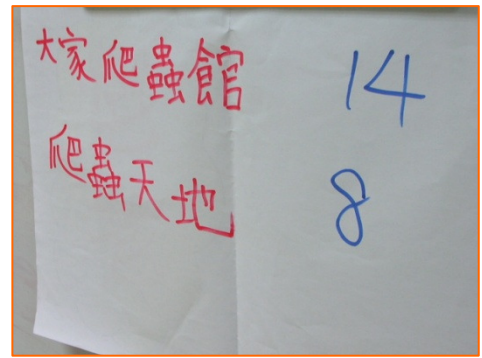 大家爬蟲館 14
爬蟲天地 8